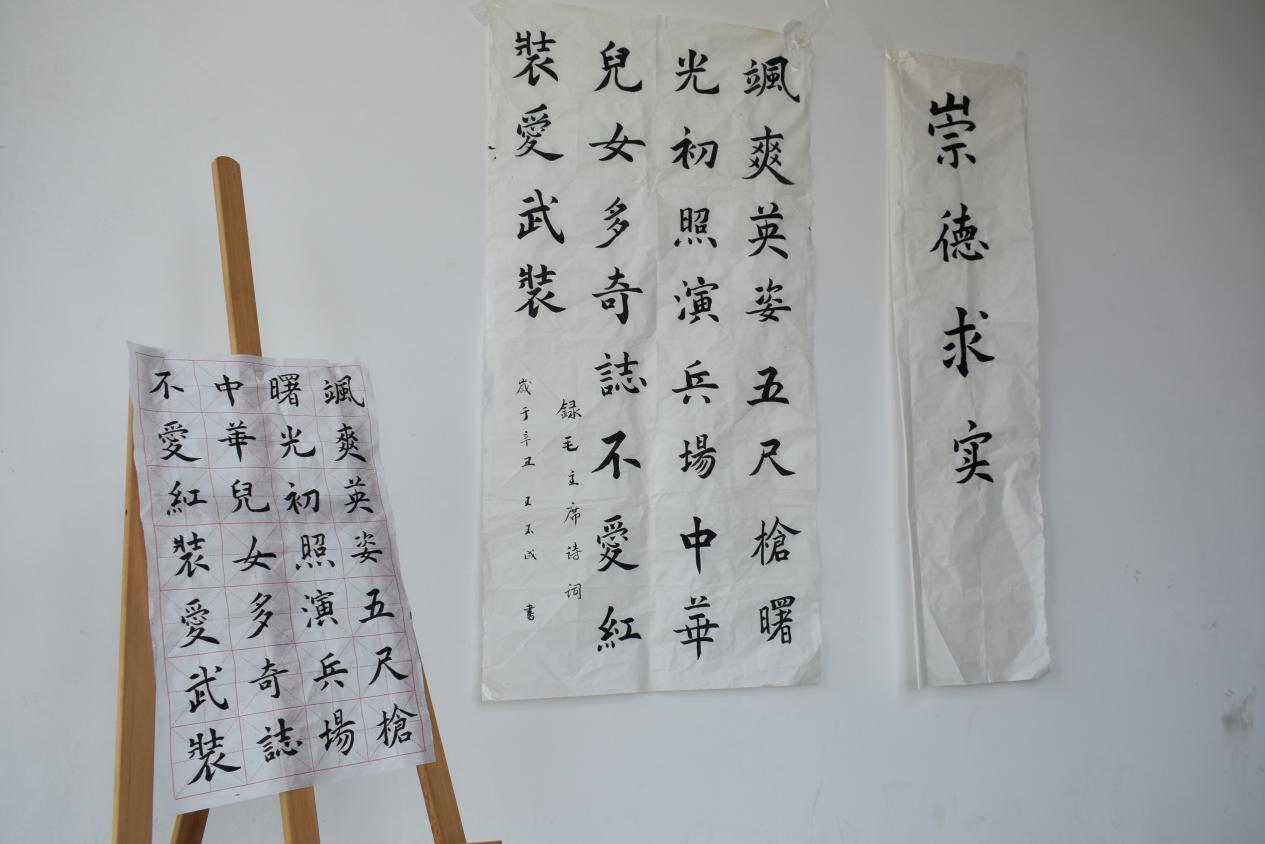 崇德求实
颯爽英姿五尺槍曙
光初照演兵場中華
兒女多奇誌不愛紅
裝愛武裝
録毛主席诗词
歲于辛丑王玉成書
颯爽英姿五尺槍
曙光初照演兵場
中華兒女多奇誌
不愛紅裝愛武裝